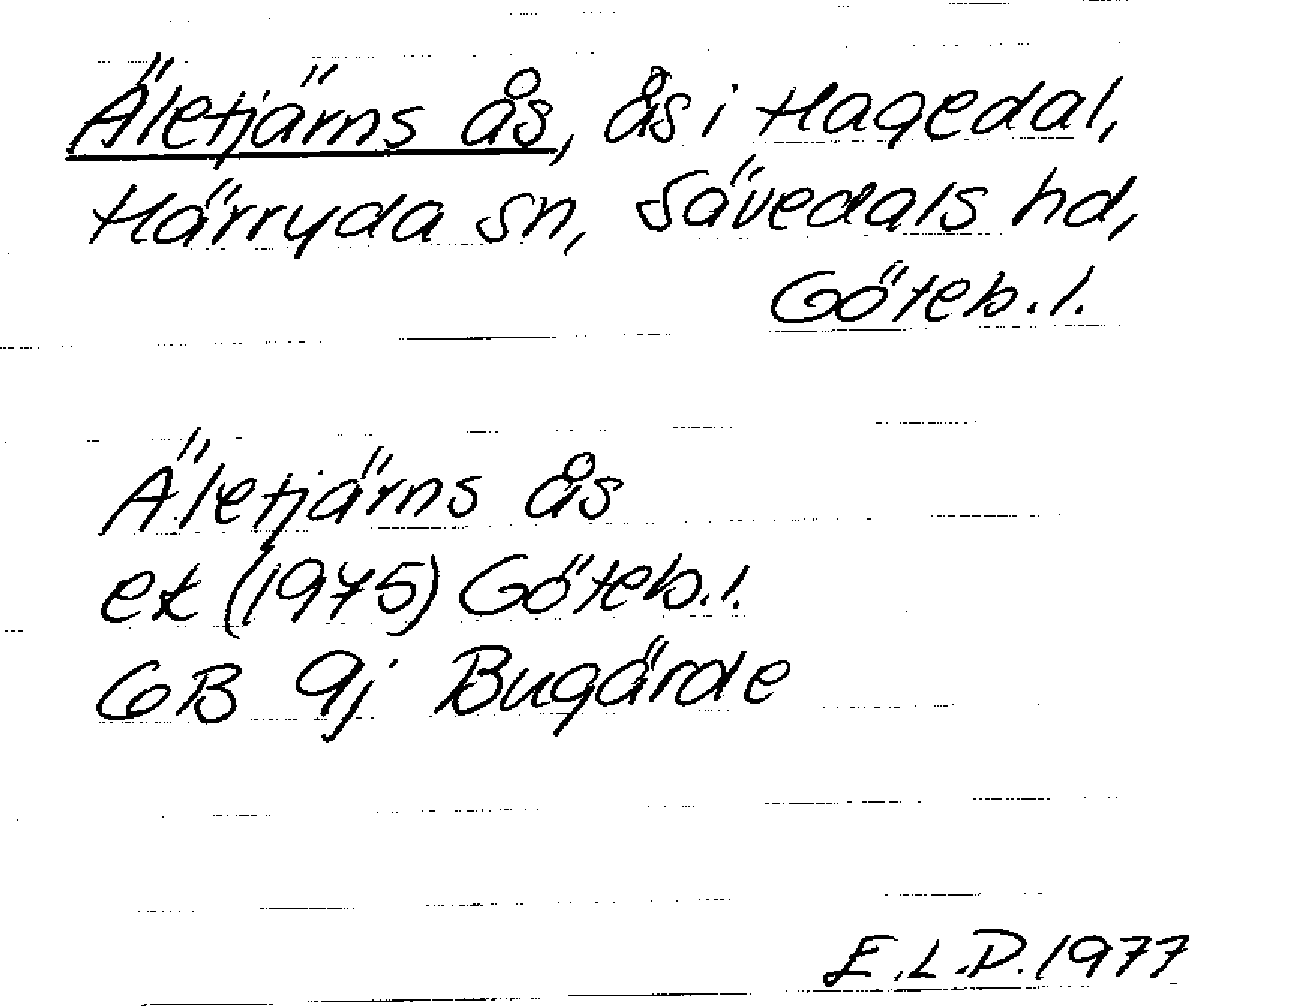 Äletjärns ås, ås i Hagedal,
Härryda sn, Sävedals hd,
Göteb. l.
Äletjärns ås
ek (1975) Göteb. l.
GB 9j Bugärde
E.L.D. 1977